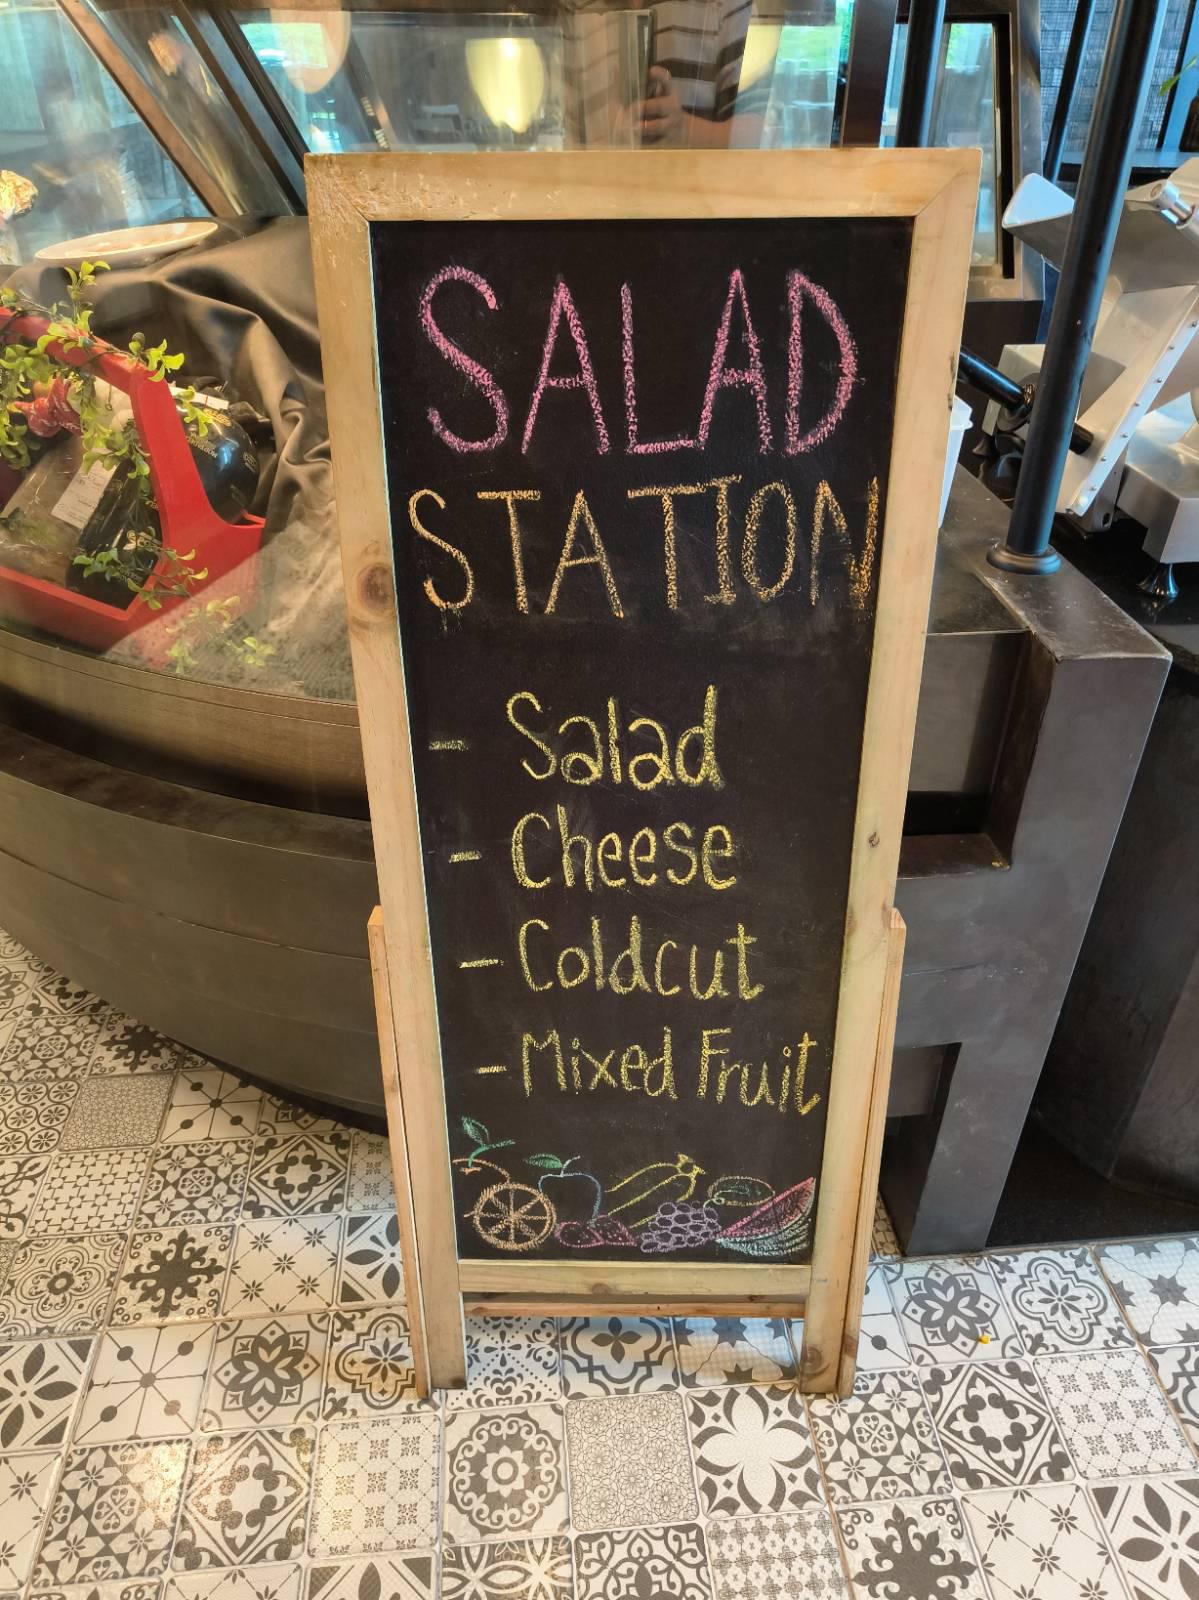 SALAD
STATION
- Salad
- Cheese
- Coldcut
- Mixed Fruit